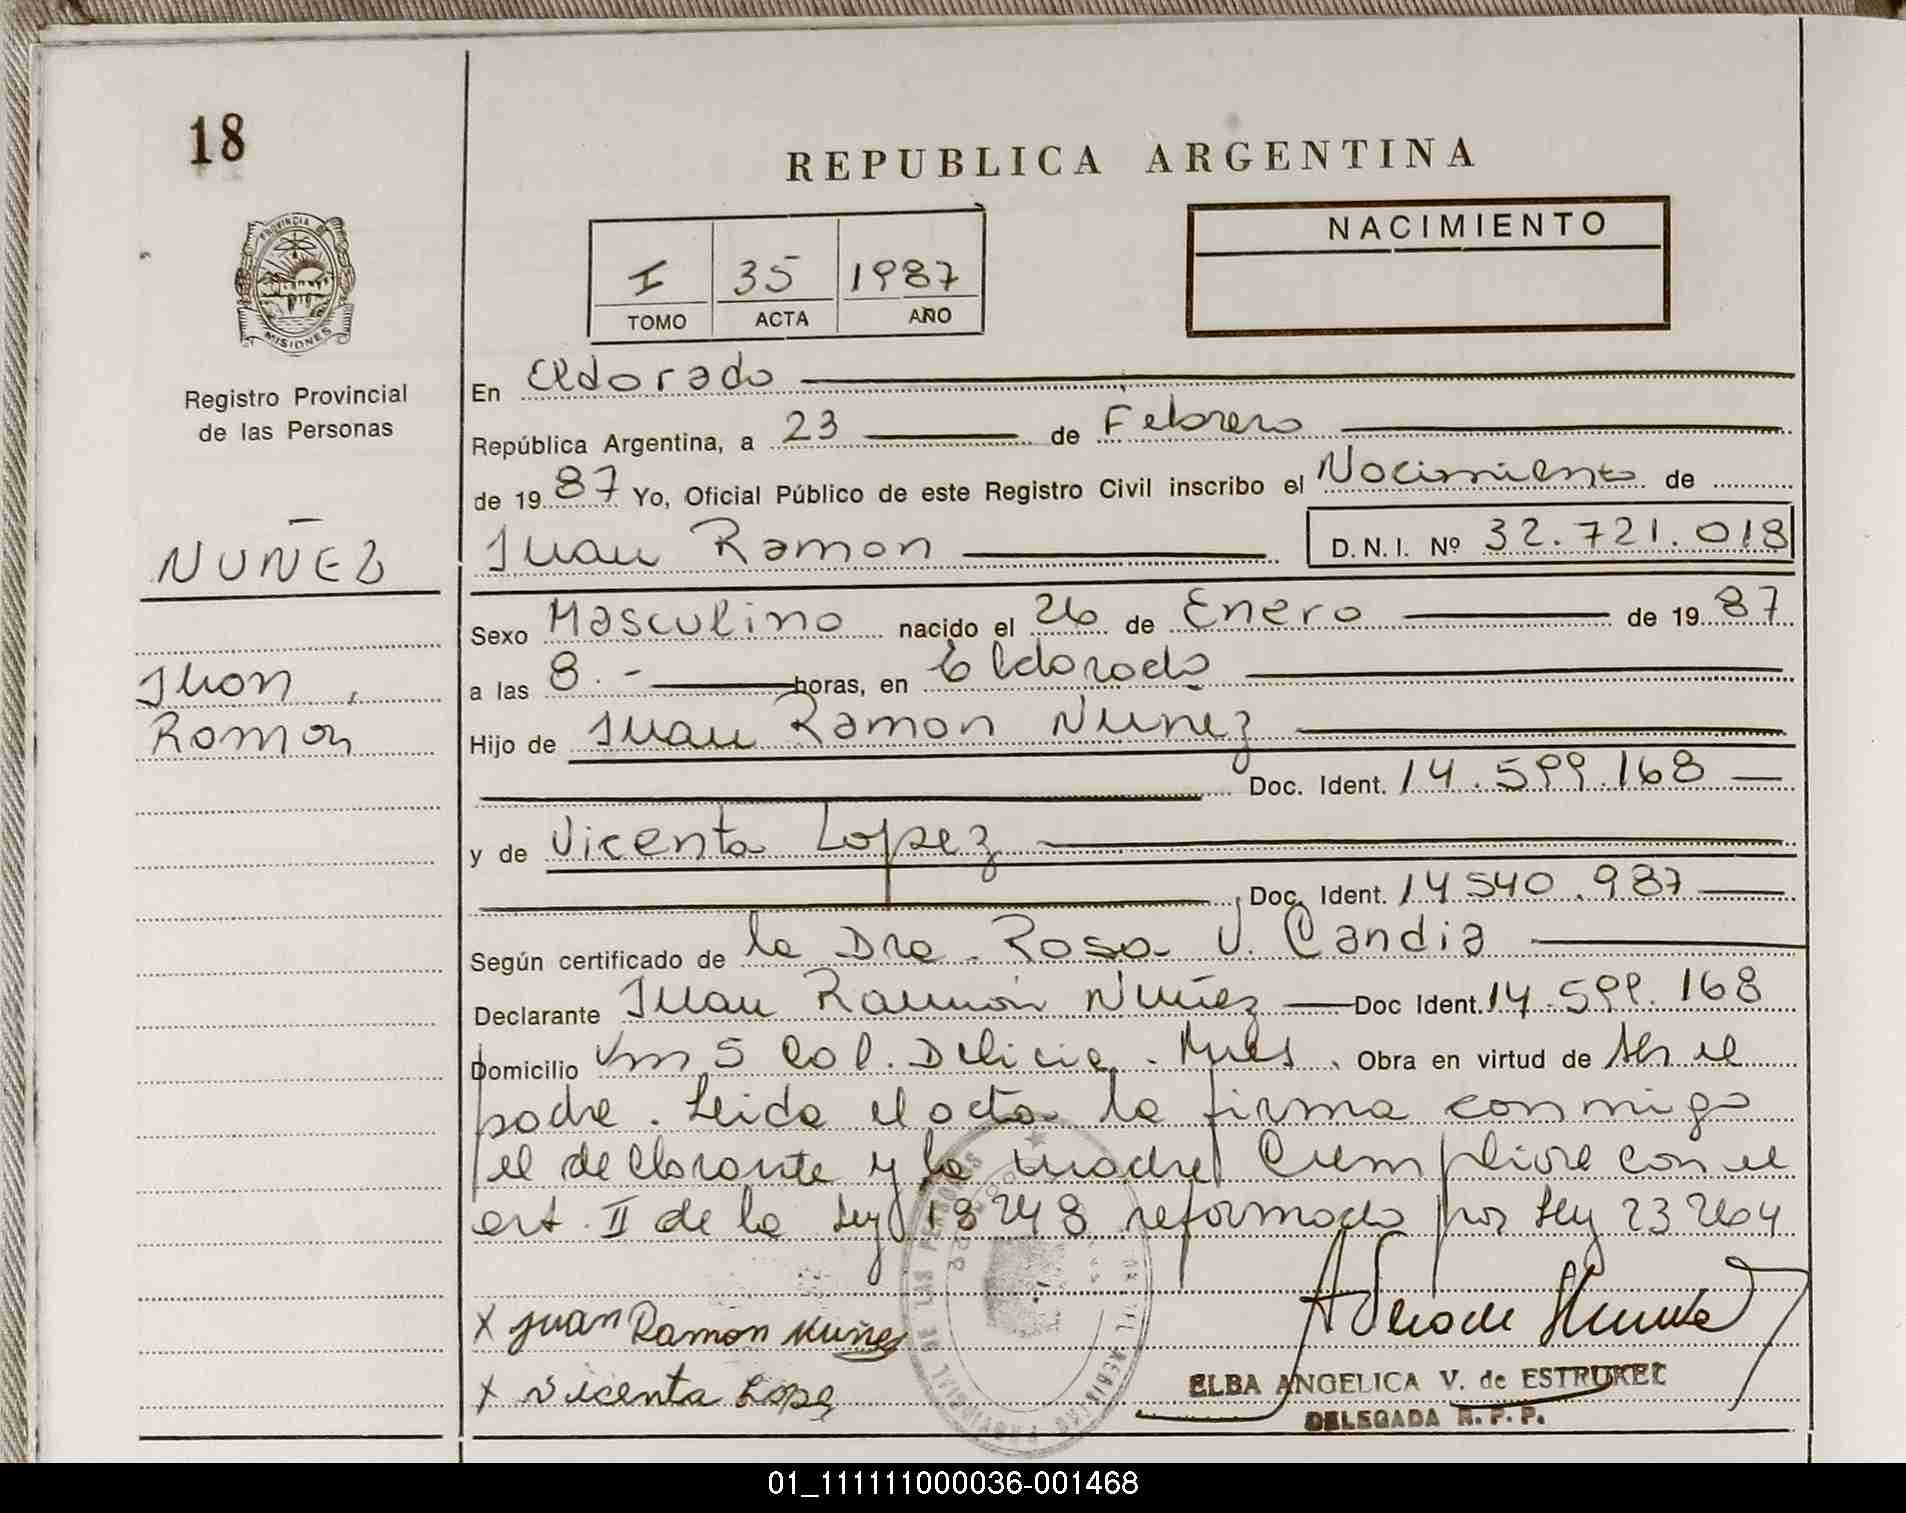 18
REPUBLICA ARGENTINA
PROVINCIA
MISIONES
Registro Provincial
de las Personas
I 35 1987
TOMO ACTA AÑO
NACIMIENTO
En Eldorado
República Argentina, a 23 de Febrero
de 1987 Yo, Oficial Público de este Registro Civil inscribo el Nacimiento de
NUÑEZ
Juan Ramon D.N.I. Nº 32.721.018
Sexo Masculino nacido el 26 de Enero de 1987
Juan
Ramon
a las 8.- horas, en Eldorado
Hijo de Juan Ramon Nuñez
Doc. Ident. 14.599.168
y de Vicenta Lopez
Doc. Ident. 14.540.987
Según certificado de la Dra. Rosa V. Candia
Declarante Juan Ramón Nuñez Doc Ident. 14.599.168
Domicilio Km 5 Col. Delicia. Mnes. Obra en virtud de ser el
padre. Leida el acta la firma conmigo
el declarante y la madre Cumplire con el
art. II de la ley 18248 reformado por ley 23264
x Juan Ramon Nuñez
x Vicenta Lopez
ELBA ANGELICA V. de ESTRUKEL
DELEGADA R. P. P.
01_111111000036-001468